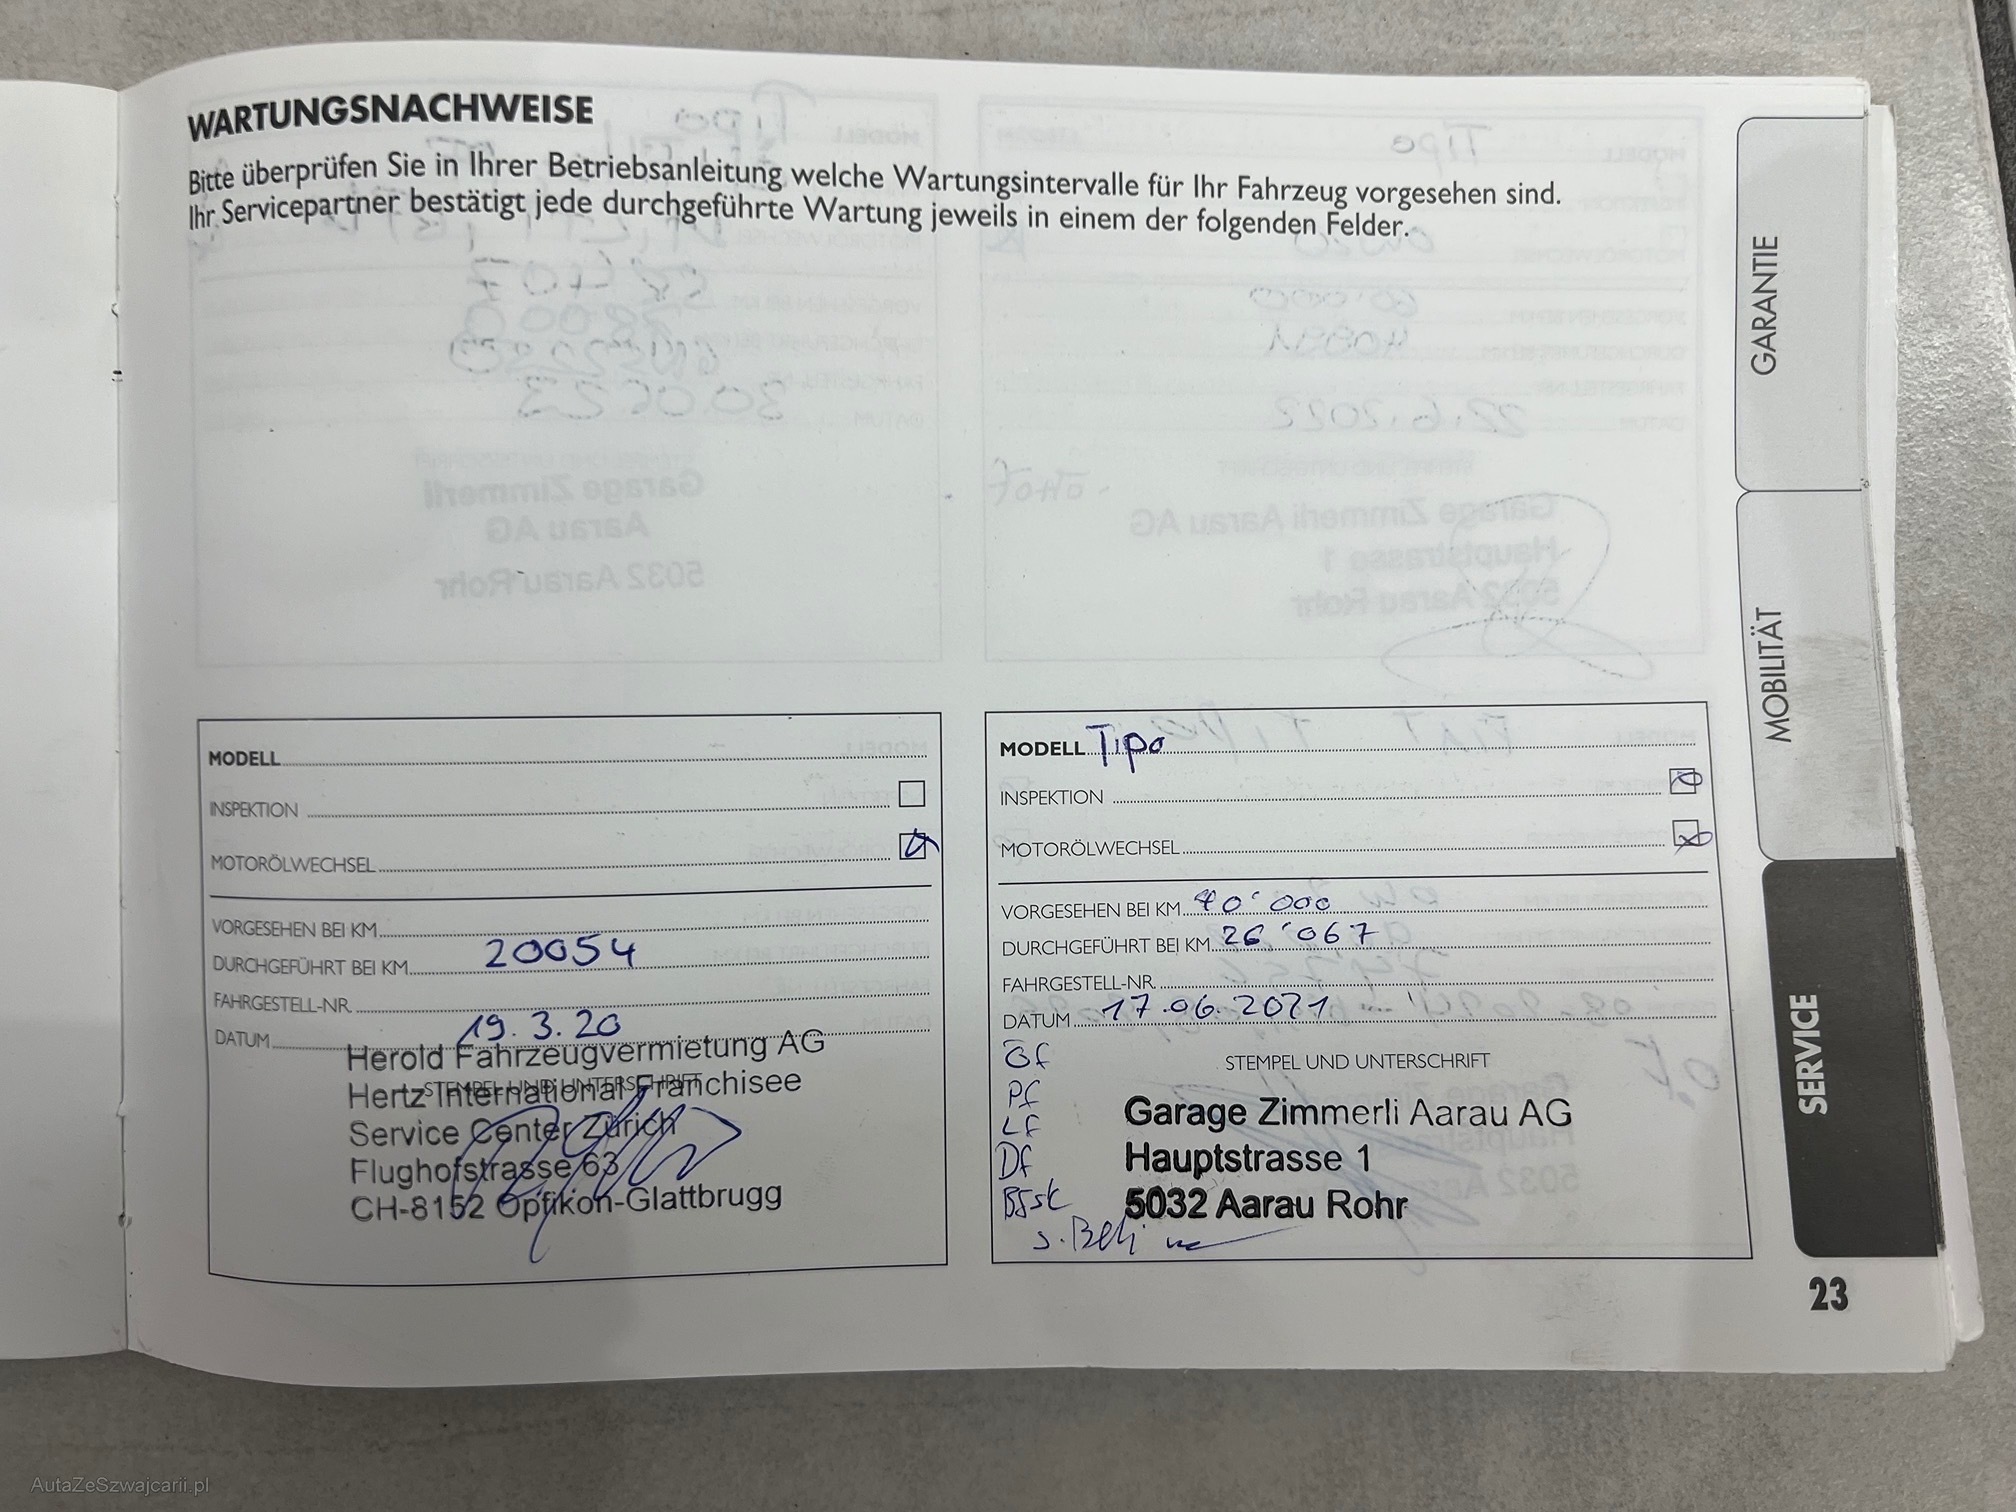 WARTUNGSNACHWEISE
Bitte überprüfen Sie in Ihrer Betriebsanleitung welche Wartungsintervalle für Ihr Fahrzeug vorgesehen sind.
Ihr Servicepartner bestätigt jede durchgeführte Wartung jeweils in einem der folgenden Felder.
MODELL
INSPEKTION
MOTORÖLWECHSEL
VORGESEHEN BEI KM
DURCHGEFÜHRT BEI KM 20054
FAHRGESTELL-NR.
DATUM 19.3.20
STEMPEL UND UNTERSCHRIFT
Herold Fahrzeugvermietung AG
Hertz International Franchisee
Service Center Zürich
Flughofstrasse 63
CH-8152 Opfikon-Glattbrugg
MODELL Tipo
INSPEKTION
MOTORÖLWECHSEL
VORGESEHEN BEI KM 40'000
DURCHGEFÜHRT BEI KM 26'067
FAHRGESTELL-NR.
DATUM 17.06.2021
STEMPEL UND UNTERSCHRIFT
Öf
Pf
Lf
Df
Garage Zimmerli Aarau AG
Hauptstrasse 1
5032 Aarau Rohr
GARANTIE
MOBILITÄT
SERVICE
23
AutaZeSzwajcarii.pl